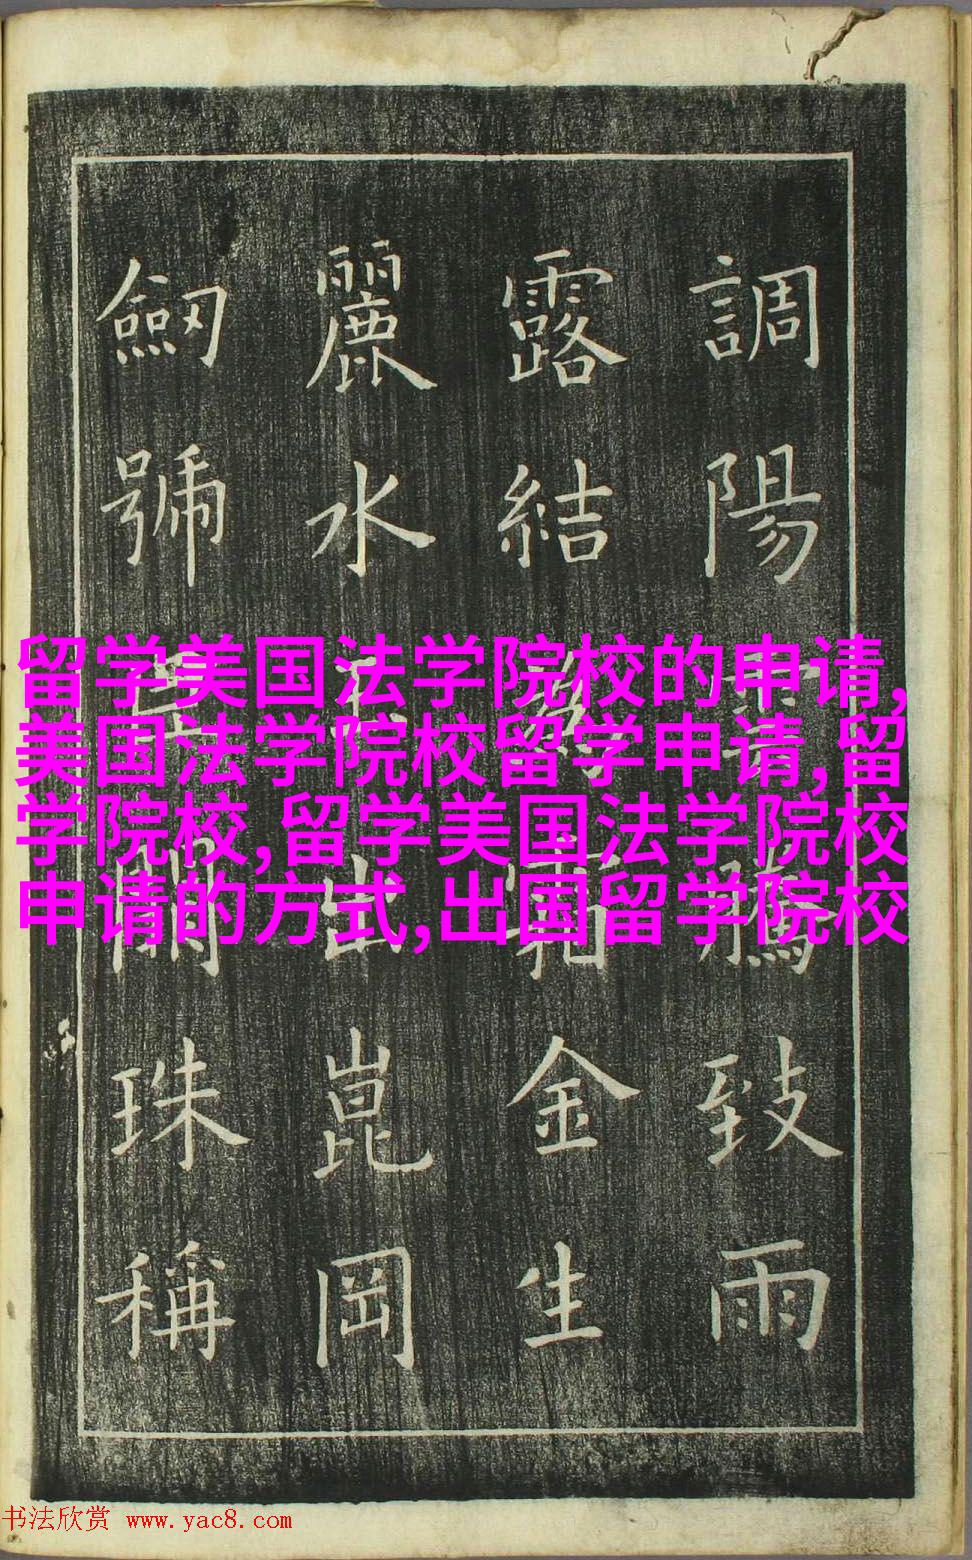 調陽騰致雨
露結霜金生
麗水出崑岡
劒號珠稱
留学美国法学院校的申请,
美国法学院校留学申请,留
学院校,留学美国法学院校
申请的方式,出国留学院校
书法欣赏 www.yac8.com